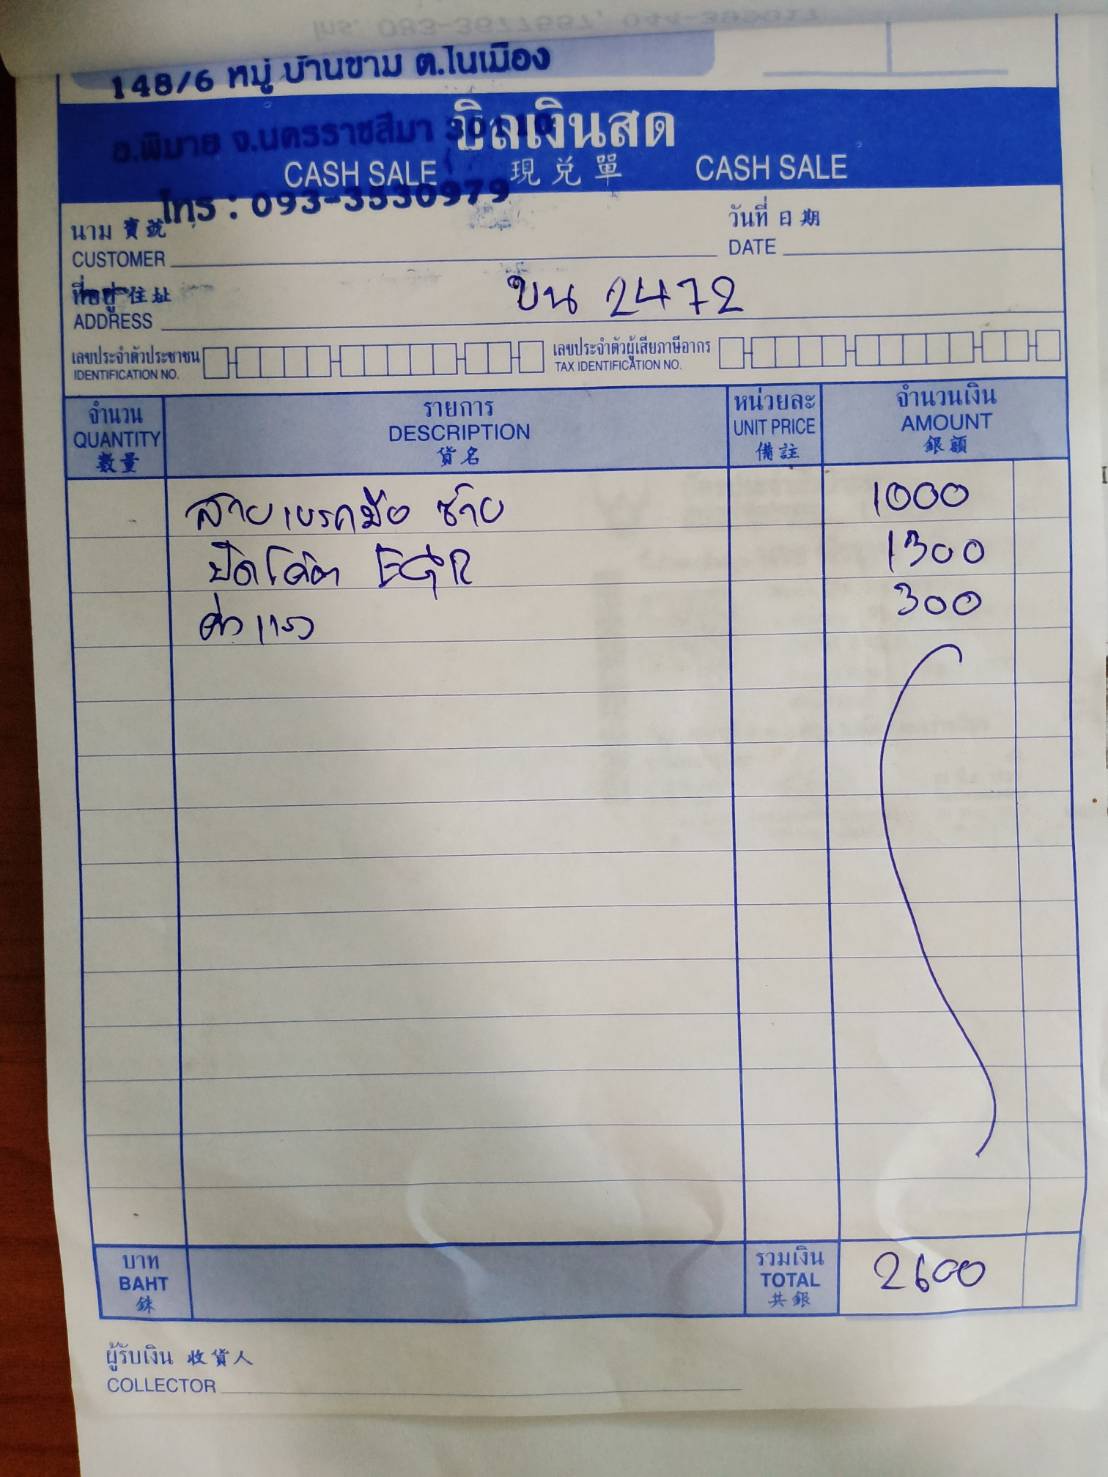 148/6 หมู่ บ้านขาม ต.ในเมือง
อ.พิมาย จ.นครราชสีมา 30110
บิลเงินสด
CASH SALE 現兌單 CASH SALE
โทร : 093-3530979
นาม 寶號 วันที่ 日期
CUSTOMER DATE
ที่อยู่ 住址
ADDRESS ขน 2472
เลขประจำตัวประชาชน เลขประจำตัวผู้เสียภาษีอากร
IDENTIFICATION NO. TAX IDENTIFICATION NO.
จำนวน รายการ หน่วยละ จำนวนเงิน
QUANTITY DESCRIPTION UNIT PRICE AMOUNT
數量 貨名 備註 銀額
สายเบรคมือ ซ้าย 1000
ปิดโค้ด EGR 1300
ค่าแรง 300
บาท รวมเงิน
BAHT TOTAL 2600
銖 共銀
ผู้รับเงิน 收貨人
COLLECTOR